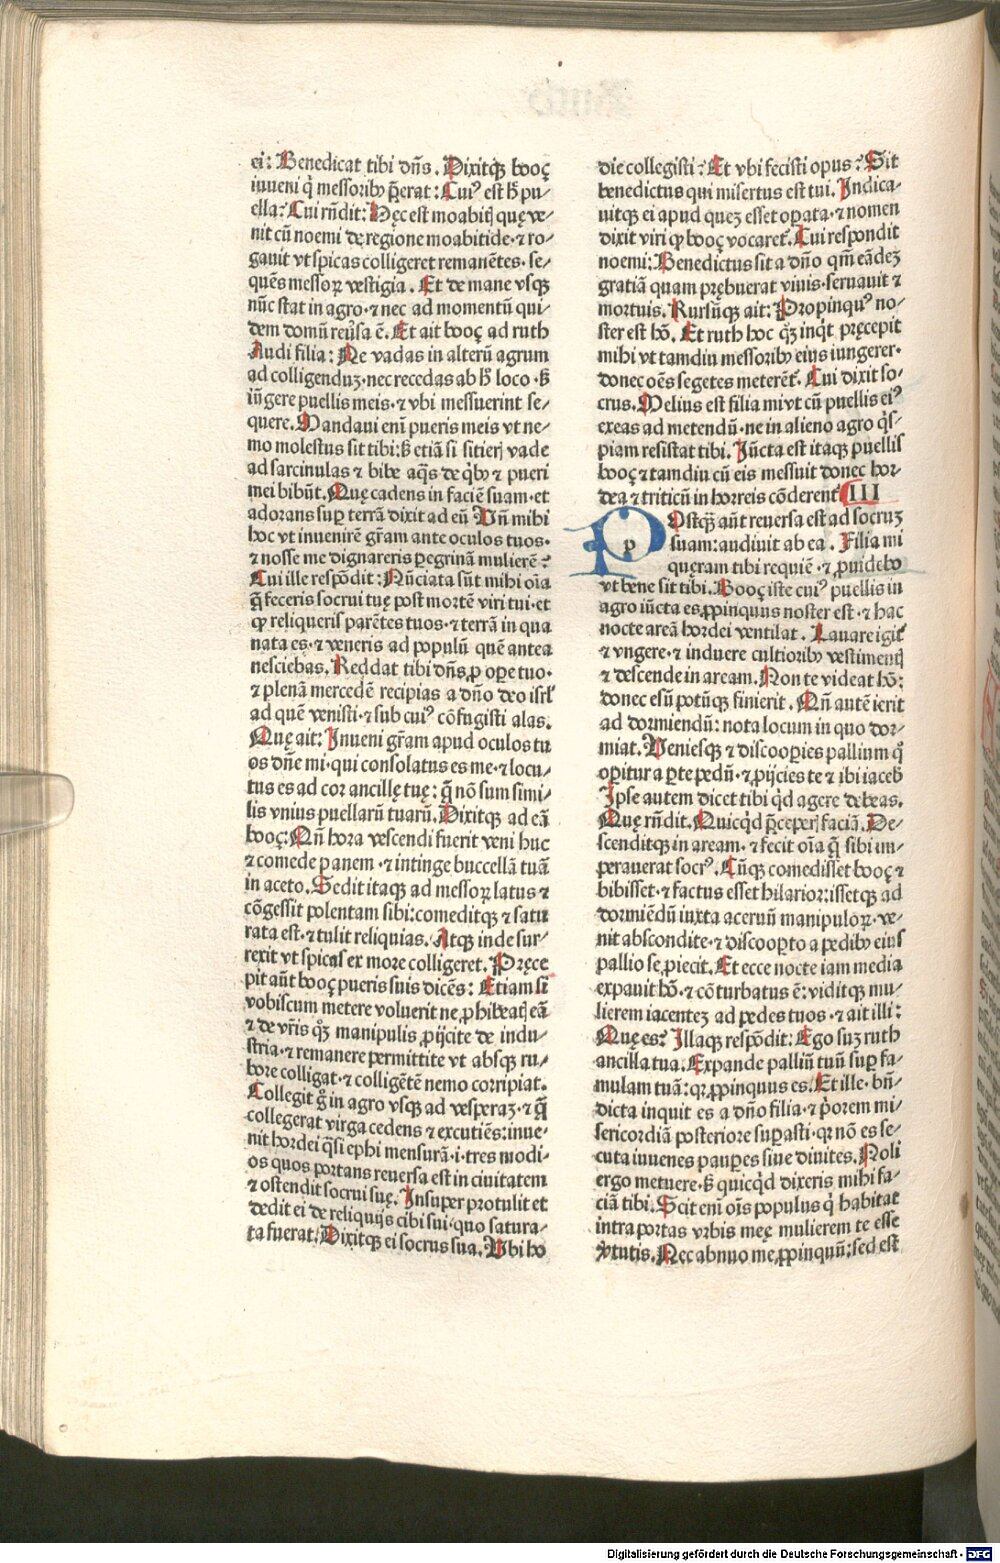 ei: Benedicat tibi dñs. Dixitqꝫ booç
iuueni q̇ messoribꝫ p̄erat: Cuiꝰ est h̄ pu/
ella? Cui rñdit: Hęc est moabitꝭ quę ve/
nit cũ noemi de regione moabitide · ⁊ ro/
gauit vt spicas colligeret remanẽtes · se/
quẽs messoꝝ vestigia. Et de mane vsqꝫ
nũc stat in agro · ⁊ nec ad momentũ qui/
dem domũ reũsa ẽ. Et ait booç ad ruth
Audi filia: Ne vadas in alterũ agrum
ad colligenduꝫ · nec recedas ab h̄ loco · sꝫ
iũgere puellis meis · ⁊ vbi messuerint se/
quere. Mandaui eni̅ pueris meis vt ne/
mo molestus sit tibi: sꝫ etiã si sitierꝭ vade
ad sarcinulas ⁊ bibe aq̃s de q̇bꝫ ⁊ pueri
mei bibũt. Quę cadens in faciẽ suam · et
adorans suꝑ terrã dixit ad eũ Vñ mihi
hoc vt inuenirẽ gr̃am ante oculos tuos ·
⁊ nosse me dignareris ꝑegrinã mulierẽ?
Cui ille respõdit: Nũciata sũt mihi oĩa
q̃ feceris socrui tuę post mortẽ viri tui · et
ꝙ reliqueris parẽtes tuos · ⁊ terrã in qua
nata es · ⁊ veneris ad populũ quẽ antea
nesciebas. Reddat tibi dñs ꝓ oꝑe tuo ·
⁊ plenã mercedẽ recipias a dño deo isrl̃
ad quẽ venisti · ⁊ sub cuiꝰ cõfugisti alas.
Quę ait: Inueni gr̃am apud oculos tu
os dñe mi · qui consolatus es me · ⁊ locu/
tus es ad cor ancillę tuę: q̃ nõ sum simi/
lis vnius puellarũ tuarũ. Dixitqꝫ ad eã
booç: Qñ hora vescendi fuerit veni huc
⁊ comede panem · ⁊ intinge buccellã tuã
in aceto. Sedit itaqꝫ ad messoꝝ latus ⁊
cõgessit polentam sibi: comeditqꝫ ⁊ satu
rata est · ⁊ tulit reliquias. Atqꝫ inde sur/
rexit vt spicas ex more colligeret. Pręce
pit aũt booç pueris suis dicẽs: Etiam si
vobiscum metere voluerit ne ꝓhibeatꝭ eã
⁊ de vr̃is qꝫ manipulis ꝓijcite de indu/
stria · ⁊ remanere permittite vt absqꝫ ru/
bore colligat · ⁊ colligẽtẽ nemo corripiat.
Collegit g̊ in agro vsqꝫ ad vesperaꝫ · ⁊ q̃
collegerat virga cedens ⁊ excutiẽs: inue/
nit hordei q̃si ephi mensurã · i · tres modi/
os quos portans reuersa est in ciuitatem
⁊ ostendit socrui suę. Insuper protulit et
dedit ei de reliquijs cibi sui · quo satura/
ta fuerat. Dixitqꝫ ei socrus sua. Vbi ho
die collegisti? Et vbi fecisti opus? Sit
benedictus qui misertus est tui. Indica/
uitqꝫ ei apud queꝫ esset oꝑata · ⁊ nomen
dixit viri ꝙ booç vocareť. Cui respondit
noemi: Benedictus sit a dño qm̃ eãdeꝫ
gratiã quam prębuerat viuis · seruauit ⁊
mortuis. Rursũqꝫ ait: Propinquꝰ no/
ster est hõ. Et ruth hoc qꝫ inq̇t pręcepit
mihi vt tamdiu messoribꝫ eius iungerer ·
donec oẽs segetes metereňť. Cui dixit so/
crus. Melius est filia mi vt cũ puellis eiꝰ
exeas ad metendũ · ne in alieno agro q̇s/
piam resistat tibi. Iũcta est itaqꝫ puellis
booç ⁊ tamdiu cũ eis messuit donec hor/
dea ⁊ triticũ in horreis cõderenť III
POstqꝫ aũt reuersa est ad socruꝫ
suam: audiuit ab ea. Filia mi
quęram tibi requiẽ · ⁊ ꝓuidebo
vt bene sit tibi. Booç iste cuiꝰ puellis in
agro iũcta es ꝓpinquus noster est · ⁊ hac
nocte areã hordei ventilat. Lauare igiť
⁊ vngere · ⁊ induere cultioribꝫ vestimentꝭ
⁊ descende in aream. Non te videat hõ:
donec esũ potũqꝫ finierit. Qñ autẽ ierit
ad dormiendũ: nota locum in quo dor/
miat. Veniesqꝫ ⁊ discooꝑies pallium q̊
oꝑitur a ꝑte pedũ · ⁊ ꝓijcies te ⁊ ibi iacebꝭ
Ipse autem dicet tibi q̇d agere debeas.
Quę rñdit. Quicq̇d p̄ceperꝭ faciã. De/
scenditqꝫ in aream · ⁊ fecit oĩa q̃ sibi im/
perauerat socrꝰ. Cũqꝫ comedisset booç ⁊
bibisset · ⁊ factus esset hilarior: issetqꝫ ad
dormiẽdũ iuxta aceruũ manipuloꝝ · ve/
nit abscondite · ⁊ discooꝑto a pedibꝫ eius
pallio se ꝓiecit. Et ecce nocte iam media
expauit hõ · ⁊ cõturbatus ẽ: viditqꝫ mu/
lierem iacenteꝫ ad pedes tuos · ⁊ ait illi:
Quę es? Illaqꝫ respõdit: Ego suꝫ ruth
ancilla tua. Expande palliũ tuũ suꝑ fa/
mulam tuã: qꝛ ꝓpinquus es. Et ille · bñ/
dicta inquit es a dño filia · ⁊ p̊orem mi/
sericordiã posteriore suꝑasti · qꝛ nõ es se/
cuta iuuenes pauꝑes siue diuites. Noli
ergo metuere · sꝫ quicq̇d dixeris mihi fa/
ciã tibi. Scit eni̅ oĩs populus q̇ habitat
intra portas vrbis meę mulierem te esse
v̊tutis. Nec abnuo me ꝓpinquũ: sed est
Digitalisierung gefördert durch die Deutsche Forschungsgemeinschaft - DFG